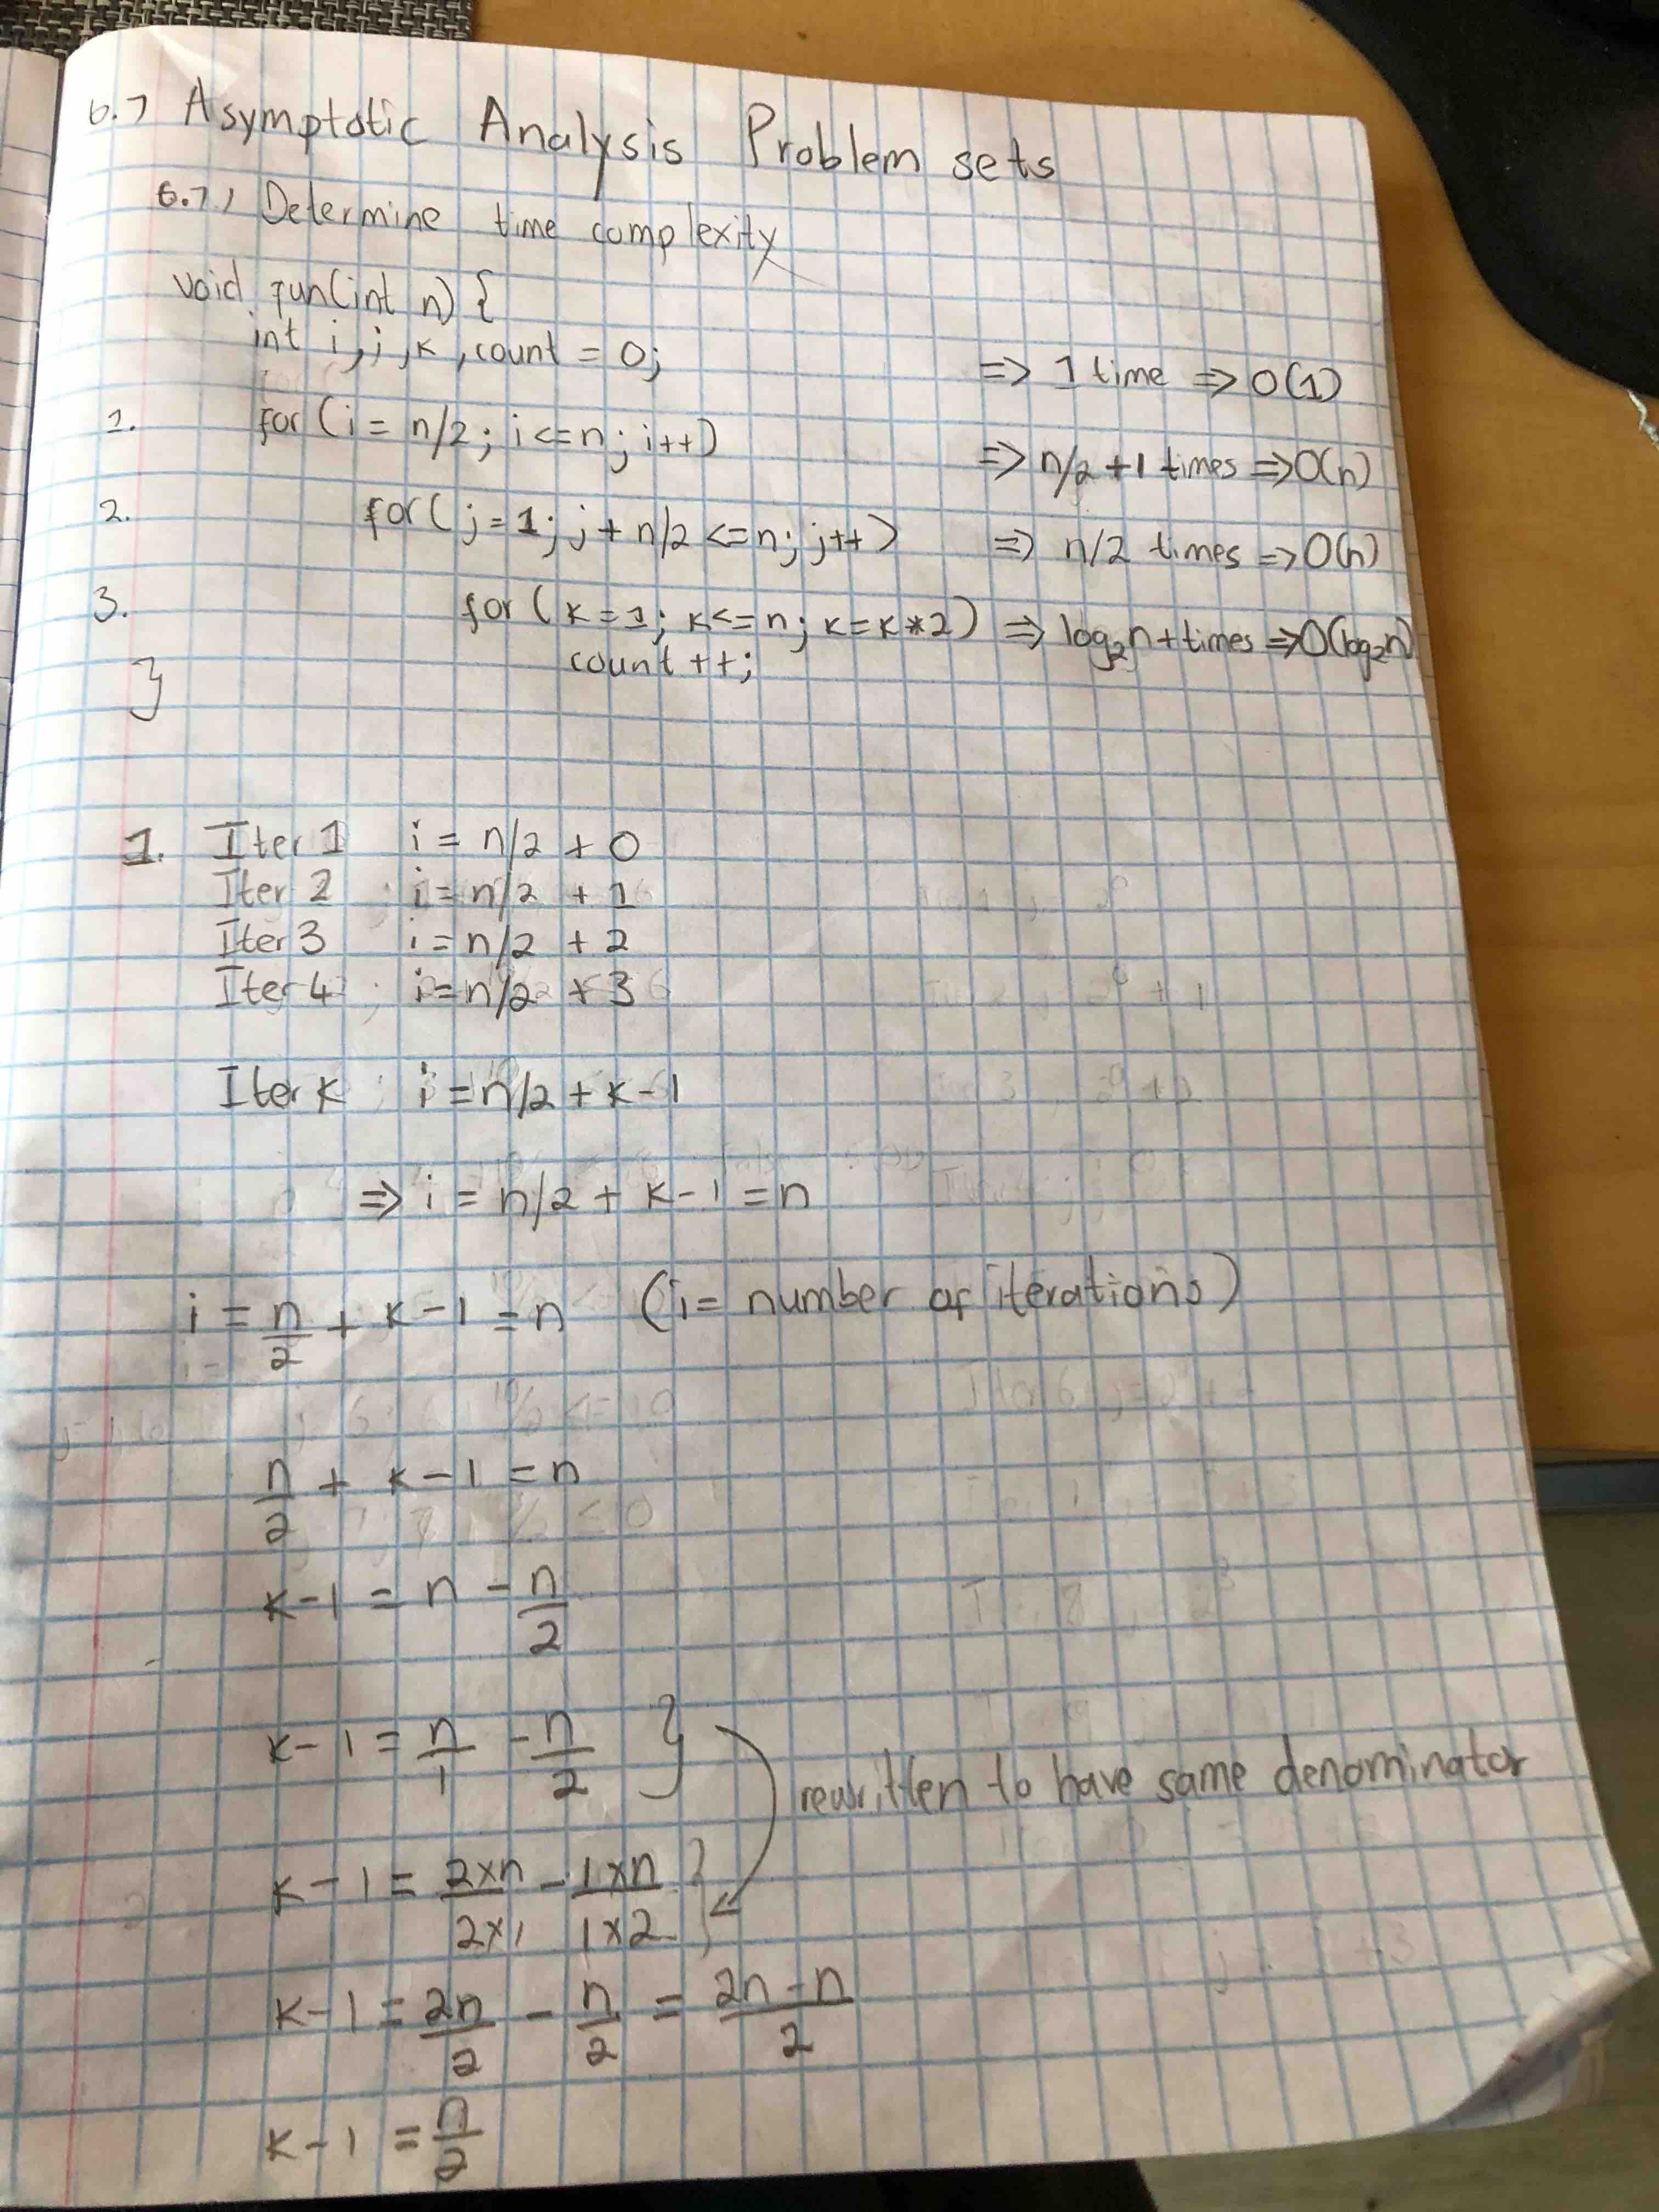 6.7 Asymptotic Analysis Problem sets
6.7.1 Determine time complexity
void fun(int n) {
int i, j, k, count = 0; => 1 time => O(1)
1. for (i = n/2; i<=n; i++) => n/2 +1 times => O(n)
2. for (j = 1; j + n/2 <= n; j++) => n/2 times => O(n)
3. for (k = 1; k<=n; k = k * 2) => log₂n + times => O(log₂n)
count ++;
}
1. Iter 1 i = n/2 + 0
Iter 2 i = n/2 + 1
Iter 3 i = n/2 + 2
Iter 4 i = n/2 + 3
Iter k i = n/2 + k - 1
=> i = n/2 + k - 1 = n
i = n/2 + k - 1 = n (i = number of iterations)
n/2 + k - 1 = n
k - 1 = n - n/2
k - 1 = n/1 - n/2 }
rewritten to have same denominator
k - 1 = 2×n/2×1 - 1×n/1×2 }
k - 1 = 2n/2 - n/2 = 2n - n/2
k - 1 = n/2